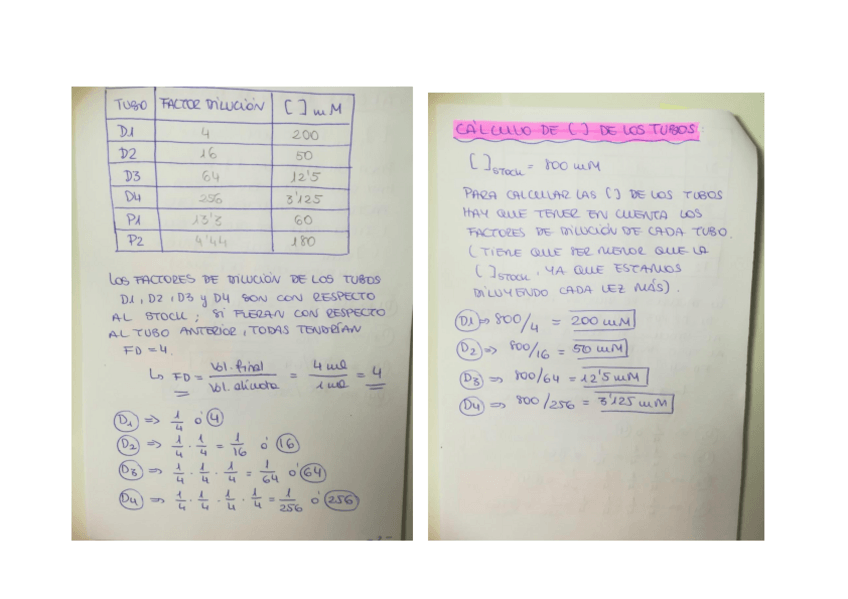 TUBO FACTOR DILUCIÓN [ ] mM
D1 4 200
D2 16 50
D3 64 12'5
D4 256 3'125
P1 13'3 60
P2 4'44 180
LOS FACTORES DE DILUCIÓN DE LOS TUBOS
D1, D2, D3 y D4 SON CON RESPECTO
AL STOCK; SI FUERAN CON RESPECTO
AL TUBO ANTERIOR, TODAS TENDRÍAN
FD = 4.
↳ FD = Vol. final / Vol. alícuota = 4 ml / 1 ml = 4
D1 => 1/4 ó 4
D2 => 1/4 · 1/4 = 1/16 ó 16
D3 => 1/4 · 1/4 · 1/4 = 1/64 ó 64
D4 => 1/4 · 1/4 · 1/4 · 1/4 = 1/256 ó 256
CÁLCULO DE [ ] DE LOS TUBOS:
[ ]STOCK = 800 mM
PARA CALCULAR LAS [ ] DE LOS TUBOS
HAY QUE TENER EN CUENTA LOS
FACTORES DE DILUCIÓN DE CADA TUBO.
(TIENE QUE SER MENOR QUE LA
[ ]STOCK, YA QUE ESTAMOS
DILUYENDO CADA VEZ MÁS).
D1 => 800/4 = 200 mM
D2 => 800/16 = 50 mM
D3 => 800/64 = 12'5 mM
D4 => 800/256 = 3'125 mM